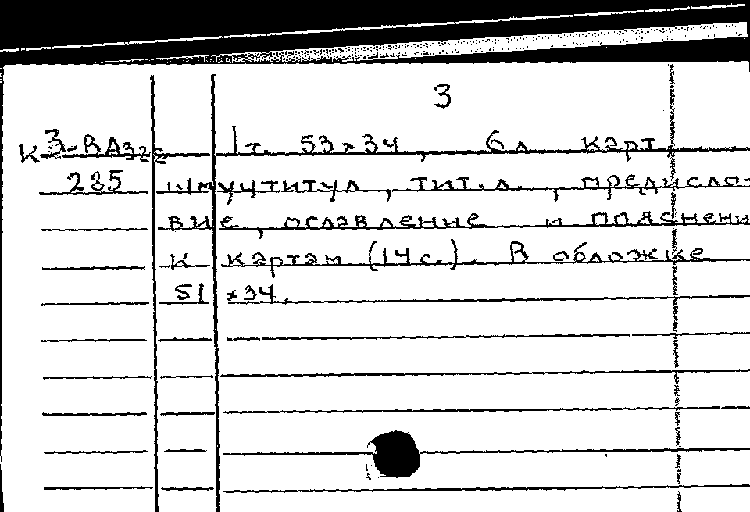 3
К 3-ВАзея 1 т. 53×34, 6 л карт
285 шмуцтитул, тит.л., предисло-
вие, оглавление и пояснени
к картам (14 с.). В обложке
51×34.